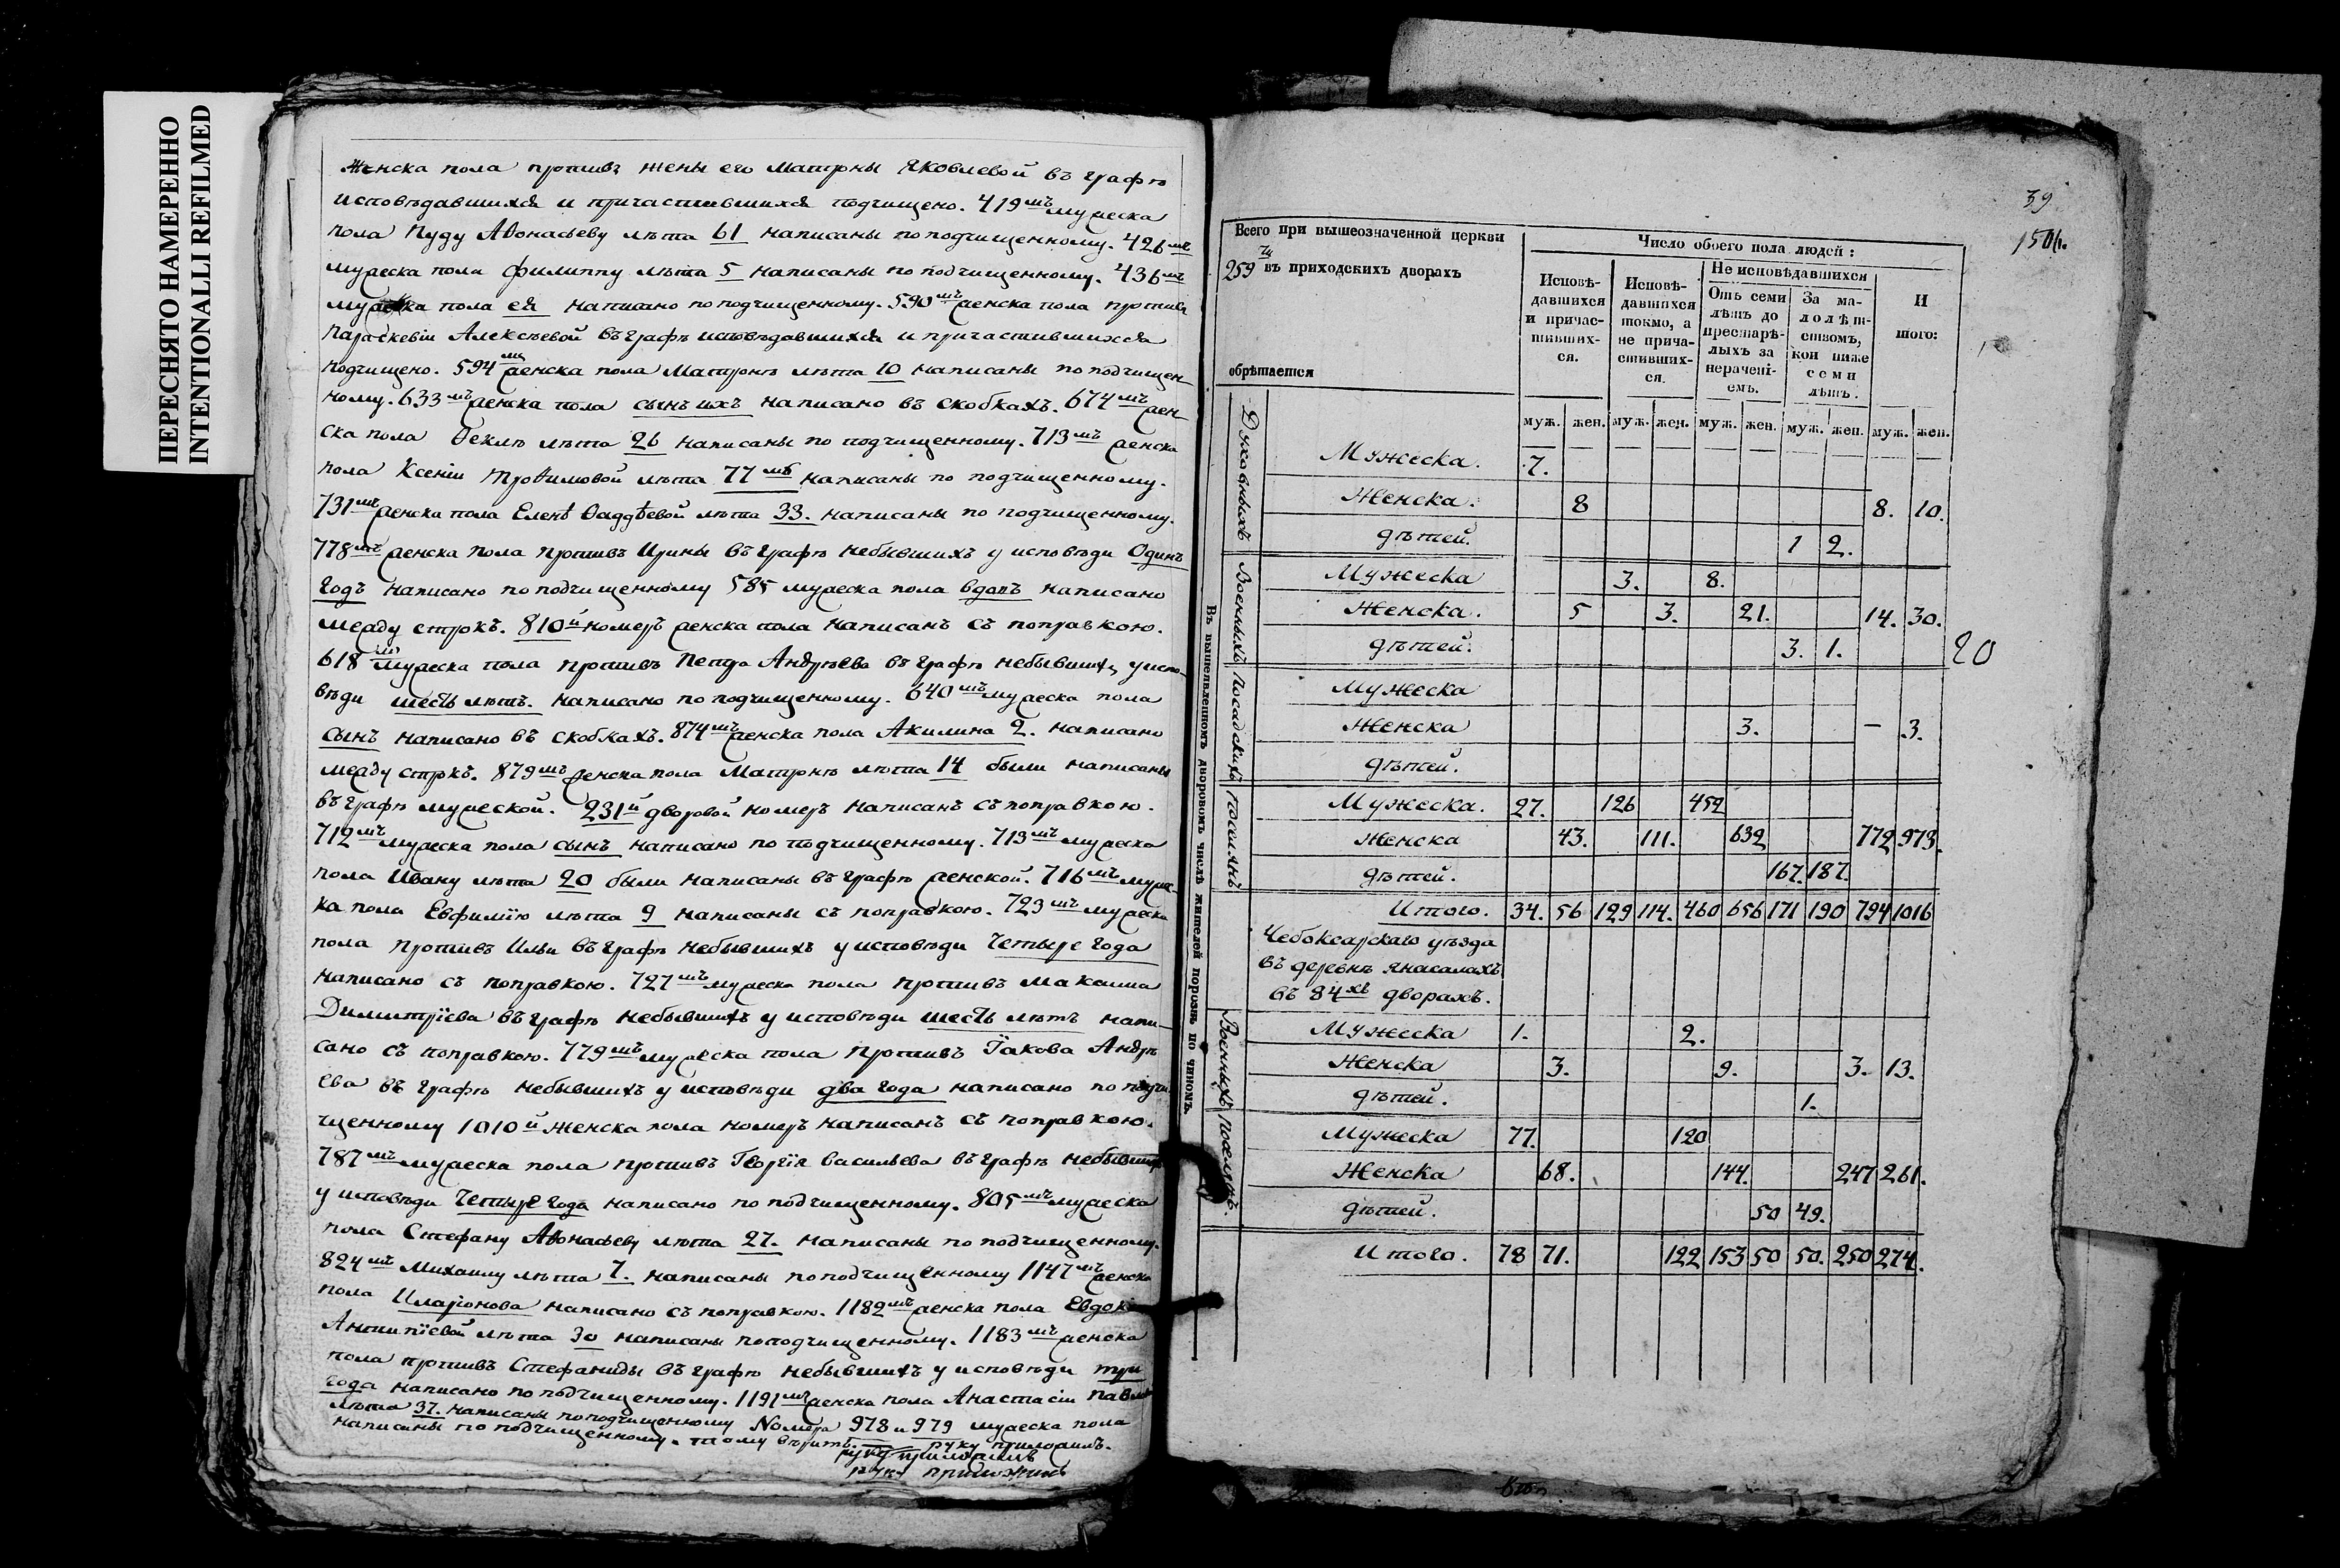 ПЕРЕСНЯТО НАМЕРЕННО
INTENTIONALLI REFILMED
Женска пола противъ жены его Матрны Яковлевой въ графѣ
исповѣдавшихся и причастившихся подчищено. 419мъ мужеска
пола Пуду Аѳонасьеву лѣта 61 написаны по подчищенному. 426мъ
мужеска пола Филиппу лѣта 5 написаны по подчищенному. 436мъ
мужеска пола ея написано по подчищенному. 590мъ женска пола противъ
Параскевіи Алексѣевой въ графѣ исповѣдавшихся и причастившихся
подчищено. 594мъ женска пола Матронѣ лѣта 10 написаны по подчищен-
ному. 633мъ женска пола сынъ ихъ написано въ скобкахъ. 674мъ жен
ска пола Ѳеклѣ лѣта 26 написаны по подчищенному. 713мъ женска
пола Ксеніи Троѳимовой лѣта 77мъ написаны по подчищенному.
731мъ женска пола Еленѣ Ѳаддѣевой лѣта 33. написаны по подчищенному.
778мъ женска пола противъ Ирины въ графѣ небывшихъ у исповѣди Одинъ
годъ написано по подчищенному 585 мужеска пола вдовъ написано
между строкъ. 810й номеръ женска пола написанъ съ поправкою.
618мъ мужеска пола противъ Петра Андрѣева въ графѣ небывшихъ у испо-
вѣди шесть лѣтъ. написано по подчищенному. 640мъ мужеска пола
сынъ написано въ скобкахъ. 874мъ женска пола Акилина 2. написано
между строкъ. 879мъ женска пола Матронѣ лѣта 14 были написаны
въ графѣ мужеской. 231й дворовой номеръ написанъ съ поправкою.
712мъ мужеска пола сынъ написано по подчищенному. 713мъ мужеска
пола Ивану лѣта 20 были написаны въ графѣ женской. 716мъ мужес-
ка пола Евфимїю лѣта 9 написаны съ поправкою. 723мъ мужеска
пола противъ Ильи въ графѣ небывшихъ у исповѣди Четыре года
написано съ поправкою. 727мъ мужеска пола противъ Максима
Димитрїева въ графѣ небывшихъ у исповѣди шесть лѣтъ напи-
сано съ поправкою. 779мъ мужеска пола противъ Їакова Андрѣ
ева въ графѣ небывшихъ у исповѣди два года написано по подчи
щенному 1010й женска пола номеръ написанъ съ поправкою.
787мъ мужеска пола противъ Георгїя Васильева въ графѣ небывших
у исповѣди Четыре года написано по подчищенному. 805мъ мужеска
пола Стефану Аѳонасьеву лѣта 27. написаны по подчищенному.
824мъ Михаилу лѣта 7. написаны по подчищенному 1147мъ женска
пола Иларїонова написано съ поправкою. 1182мъ женска пола Евдок
Антипїевой лѣта 30 написаны по подчищенному. 1183мъ женска
пола противъ Стефаниды въ графѣ небывшихъ у исповѣди три
года написано по подчищенному. 1191мъ женска пола Анастасіи Павл
лѣта 37. написаны по подчищенному Номера 978 и 979 мужеска пола
написаны по подчищенному. тому вѣрить. руку приложилъ.
руку приложилъ
руку приложилъ
39
150
Всего при вышеозначенной церкви
259ти въ приходскихъ дворахъ
обрѣтается
Число обоего пола людей:
Исповѣ-
давшихся
и причас-
тивших-
ся.
Исповѣ-
давшихся
токмо, а
не прича-
стивших-
ся.
Не исповѣдавшихся
Отъ семи
лѣтъ до
престарѣ-
лыхъ за
нерачені-
емъ.
За ма-
лолѣт-
ствомъ,
кои ниже
семи
лѣтъ.
И
того:
муж. жен. муж. жен. муж. жен. муж. жен. муж. жен.
Въ вышепвленномъ дворовомъ числѣ жителей порознь по чиномъ.
Духовныхъ
Мужеска. 7.
Женска. 8 8. 10.
дѣтей. 1 2.
Военныхъ
Мужеска 3. 8.
Женска. 5 3. 21. 14. 30.
дѣтей. 3. 1.
20
Посадскихъ
Мужеска
Женска 3. — 3.
дѣтей.
Поселянъ
Мужеска. 27. 126 452
Женска 43. 111. 632 772 973.
дѣтей. 167. 187.
Итого. 34. 56 129 114. 460 656 171 190 794 1016
Чебоксарскаго уѣзда
въ деревнѣ Янасалахъ
въ 84хъ дворахъ.
Военныхъ
Мужеска 1. 2.
Женска 3. 9. 3. 13.
дѣтей. 1.
Поселянъ.
Мужеска 77. 120
Женска 68. 144. 247 261.
дѣтей. 50 49.
Итого. 78 71. 122 153 50 50. 250 274.